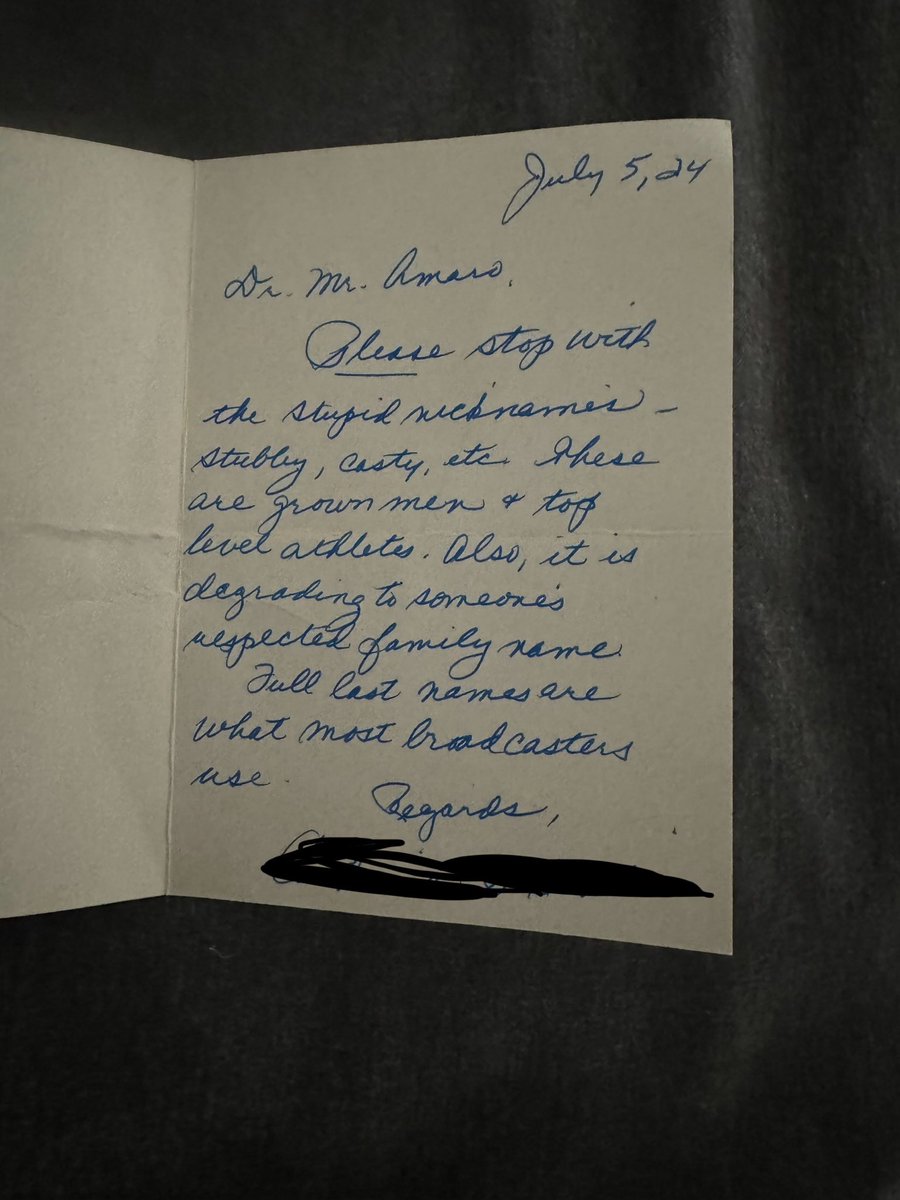 July 5, 24
Dr. Mr. Amaro,
Please stop with
the stupid nicknames –
stubby, casty, etc. These
are grown men & top
level athletes. Also, it is
degrading to someone's
respected family name
Full last names are
what most broadcasters
use.
Regards,